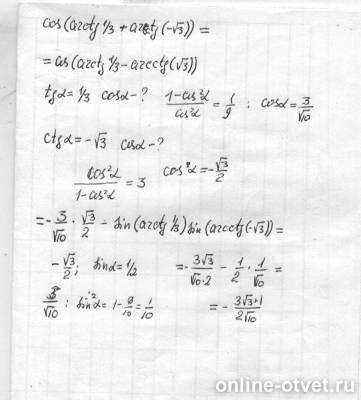 cos(arctg 1/3 + arcctg(-√3)) =
= cos(arctg 1/3 - arcctg(√3))
tgα = 1/3 cosα - ? (1-cos²α)/cos²α = 1/9 ; cosα = 3/√10
ctgα = -√3 cosα - ?
cos²α/(1-cos²α) = 3 cos²α = -√3/2
= - 3/√10 · √3/2 - sin(arctg 1/3) sin(arcctg(-√3)) =
- √3/2 ; sinα = 1/2 = - 3√3/(√10·2) - 1/2 · 1/√10 =
3/√10 : sin²α = 1 - 9/10 = 1/10 = - (3√3+1)/(2√10)
online-otvet.ru